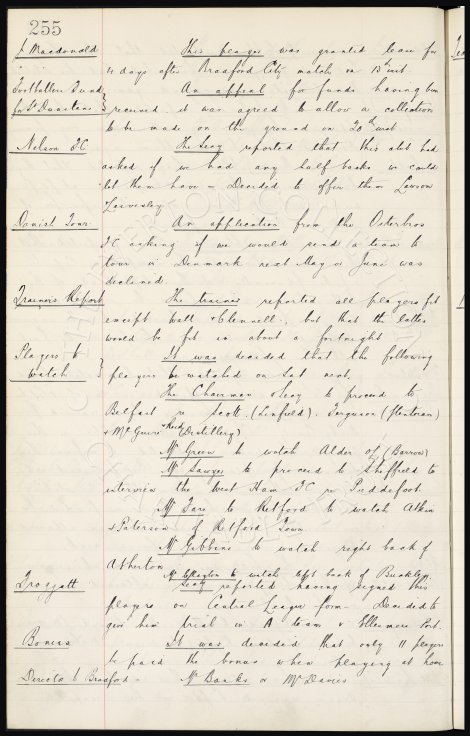 255
J Macdonald This player was granted leave for
4 days after Bradford City match on 13th inst.
Footballers Fund An appeal for funds having been
for St Dunstans } received it was agreed to allow a collection
to be made on the ground on 20th inst
Nelson FC The Secy reported that this club had
asked if we had any half backs we could
let them have – Decided to offer them Lawson
Leivesley
Danish Tour An application from the Osterbros
FC asking if we would send a team to
tour in Denmark next May or June was
declined
Trainers Report The trainer reported all players fit
except Watt & Clennell, but that the latter
would be fit in about a fortnight
Players to It was decided that the following
watch } players be watched on Sat next.
The Chairman & Secy to proceed to
Belfast re Scott (Linfield). Ferguson (Glentoran)
& McGuire & Reid (Distillery)
Mr Green to watch Alder of (Barrow)
Mr Sawyer to proceed to Sheffield to
interview the West Ham FC re Puddefoot
Mr to Retford to watch Atkin
& Paterson of Retford Town.
Mr Gibbins to watch right back of
Atherton
Mr to watch left back of Buckley
Froggatt Secy reported having signed this
player on Central League form – Decided to
give him trial in A team v Ellesmere Port.
Bonus It was decided that only 11 players
be paid the bonus when playing at home
Director to Bradford – Mr Banks or Mr Davies